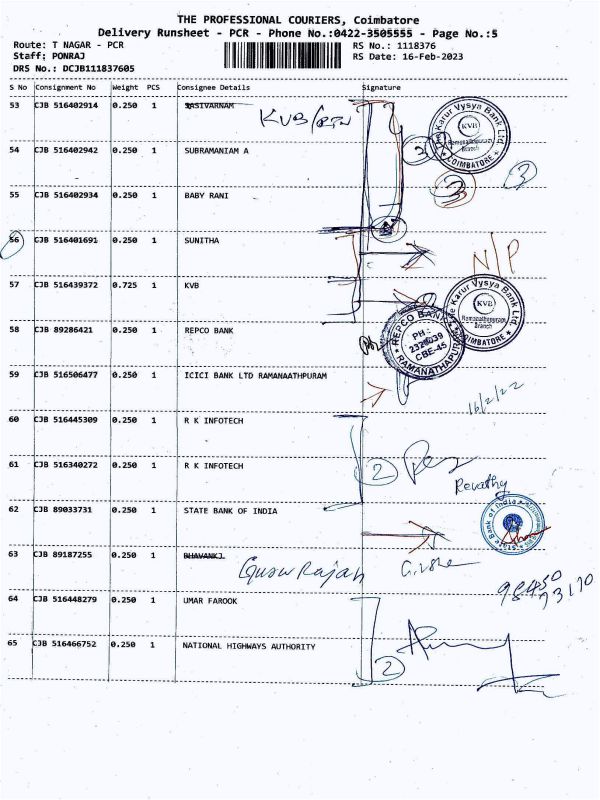 THE PROFESSIONAL COURIERS, Coimbatore
Delivery Runsheet - PCR - Phone No.:0422-3505555 - Page No.:5
Route: T NAGAR - PCR
Staff: PONRAJ
DRS No.: DCJB111837605
RS No.: 1118376
RS Date: 16-Feb-2023
S No Consignment No Weight PCS Consignee Details Signature
53 CJB 516402914 0.250 1 SASIVARNAM
KVB
54 CJB 516402942 0.250 1 SUBRAMANIAM A
3
3
3
55 CJB 516402934 0.250 1 BABY RANI
56 CJB 516401691 0.250 1 SUNITHA
N/P
57 CJB 516439372 0.725 1 KVB
58 CJB 89286421 0.250 1 REPCO BANK
59 CJB 516506477 0.250 1 ICICI BANK LTD RAMANAATHPURAM
60 CJB 516445309 0.250 1 R K INFOTECH
61 CJB 516340272 0.250 1 R K INFOTECH
2
Revathy
62 CJB 89033731 0.250 1 STATE BANK OF INDIA
63 CJB 89187255 0.250 1 BHAVANKJ
64 CJB 516448279 0.250 1 UMAR FAROOK
65 CJB 516466752 0.250 1 NATIONAL HIGHWAYS AUTHORITY
2
The Karur Vysya Bank Ltd.
KVB
Ramanathapuram
Branch
COIMBATORE
The Karur Vysya Bank Ltd.
KVB
Ramanathapuram
Branch
COIMBATORE
REPCO BANK
PH:
2320039
CBE-45
RAMANATHAPURAM
State Bank of India